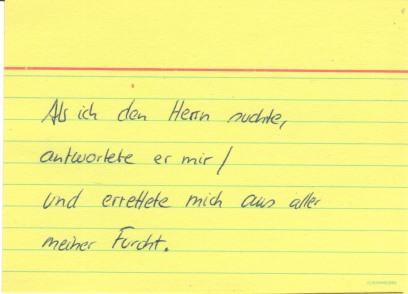 Als ich den Herrn suchte,
antwortete er mir /
und errettete mich aus aller
meiner Furcht.